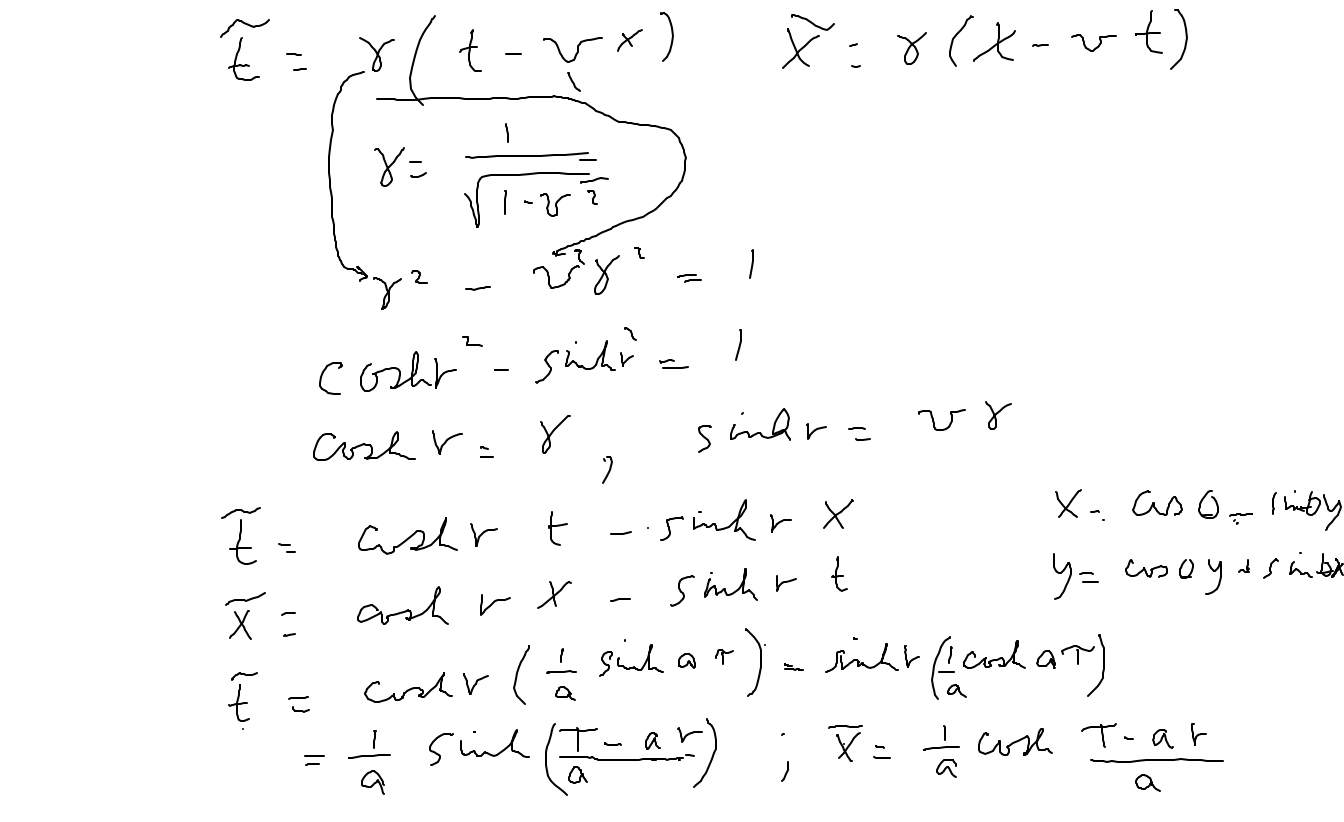 t̃ = γ(t - vx)   x̃ = γ(x - vt)
γ = 1/√(1-v²)
γ² - v²γ² = 1
coshr² - sinhr² = 1
cosh r = γ, sinh r = vγ
t̃ = cosh r t - sinh r x
x = cos θ - sinθy
x̃ = cosh r x - sinh r t
y = cosθy + sinθx
t̃ = cosh r (1/a sinh aτ) - sinh r (1/a cosh aτ)
= 1/a sinh((τ - ar)/a) ; x̃ = 1/a cosh (τ - ar)/a